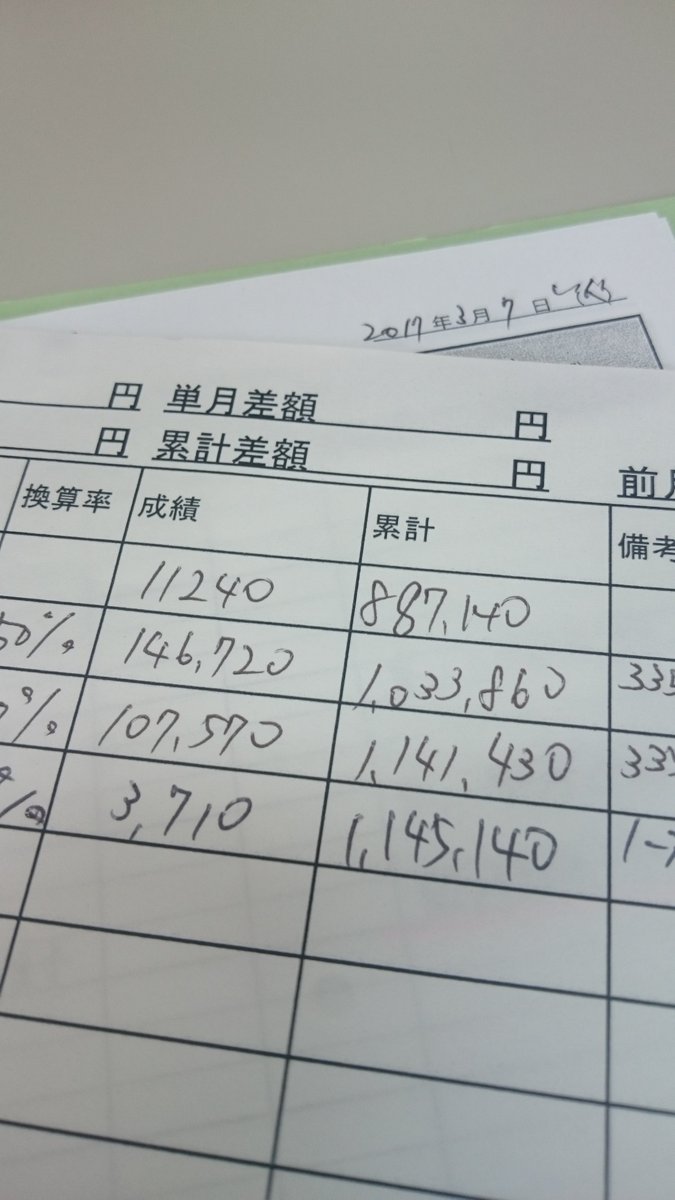 2017年3月7日
円 単月差額 円
円 累計差額 円 前月
換算率 成績 累計 備考
11240 887,140
50% 146,720 1,033,860 335
% 107,570 1,141,430 335
% 3,710 1,145,140 1-7